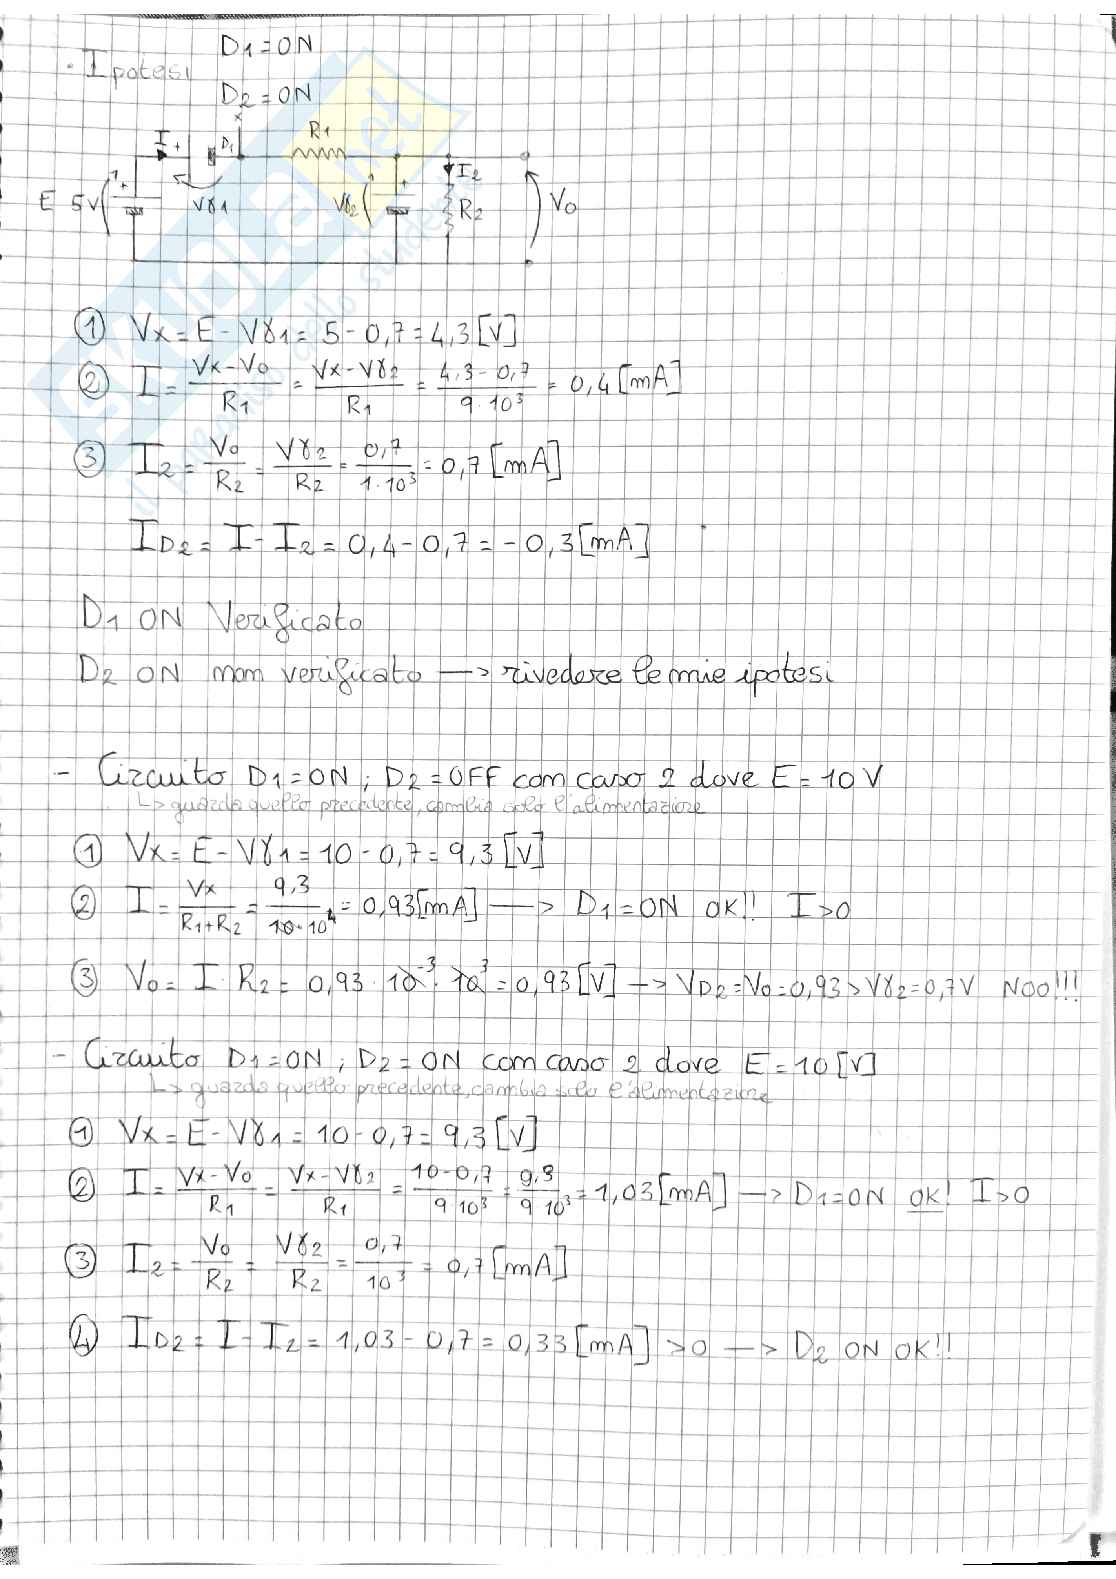 D1 = ON
· Ipotesi
D2 = ON
x
I + D1 R1
E 5V + Vγ1 Vγ2 + I2 R2 Vo
① Vx = E - Vγ1 = 5 - 0,7 = 4,3 [V]
② I = Vx - Vo / R1 = Vx - Vγ2 / R1 = 4,3 - 0,7 / 9·10³ = 0,4 [mA]
③ I2 = Vo / R2 = Vγ2 / R2 = 0,7 / 1·10³ = 0,7 [mA]
ID2 = I - I2 = 0,4 - 0,7 = -0,3 [mA]
D1 ON Verificato
D2 ON non verificato —> rivedere le mie ipotesi
- Circuito D1 = ON ; D2 = OFF con caso 2 dove E = 10 V
↳ guarda quello precedente, cambia solo l'alimentazione
① Vx = E - Vγ1 = 10 - 0,7 = 9,3 [V]
② I = Vx / R1 + R2 = 9,3 / 10·10⁴ = 0,93 [mA] —> D1 = ON OK!! I > 0
③ Vo = I · R2 = 0,93 · 10⁻³ · 10³ = 0,93 [V] —> VD2 = Vo = 0,93 > Vγ2 = 0,7V NOO!!!
- Circuito D1 = ON ; D2 = ON con caso 2 dove E = 10 [V]
↳ guarda quello precedente, cambia solo l'alimentazione
① Vx = E - Vγ1 = 10 - 0,7 = 9,3 [V]
② I = Vx - Vo / R1 = Vx - Vγ2 / R1 = 10 - 0,7 / 9·10³ = 9,3 / 9·10³ = 1,03 [mA] —> D1 = ON OK! I > 0
③ I2 = Vo / R2 = Vγ2 / R2 = 0,7 / 10³ = 0,7 [mA]
④ ID2 = I - I2 = 1,03 - 0,7 = 0,33 [mA] > 0 —> D2 ON OK!!